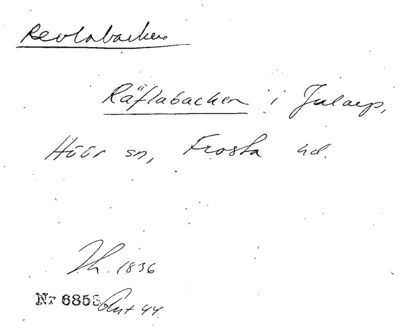 Revlabacken
Räflabacken i Jularp,
Höör sn, Frosta hd.
Th. 1896
Nr 6858 Ant 44